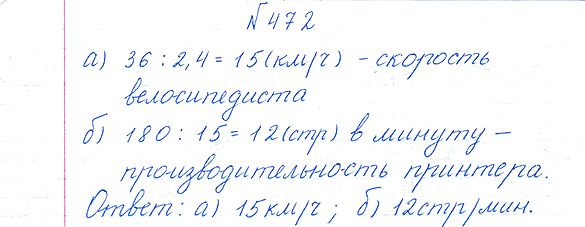 №472
а) 36 : 2,4 = 15 (км/ч) - скорость
велосипедиста
б) 180 : 15 = 12 (стр) в минуту –
производительность принтера.
Ответ: а) 15 км/ч ; б) 12 стр/мин.